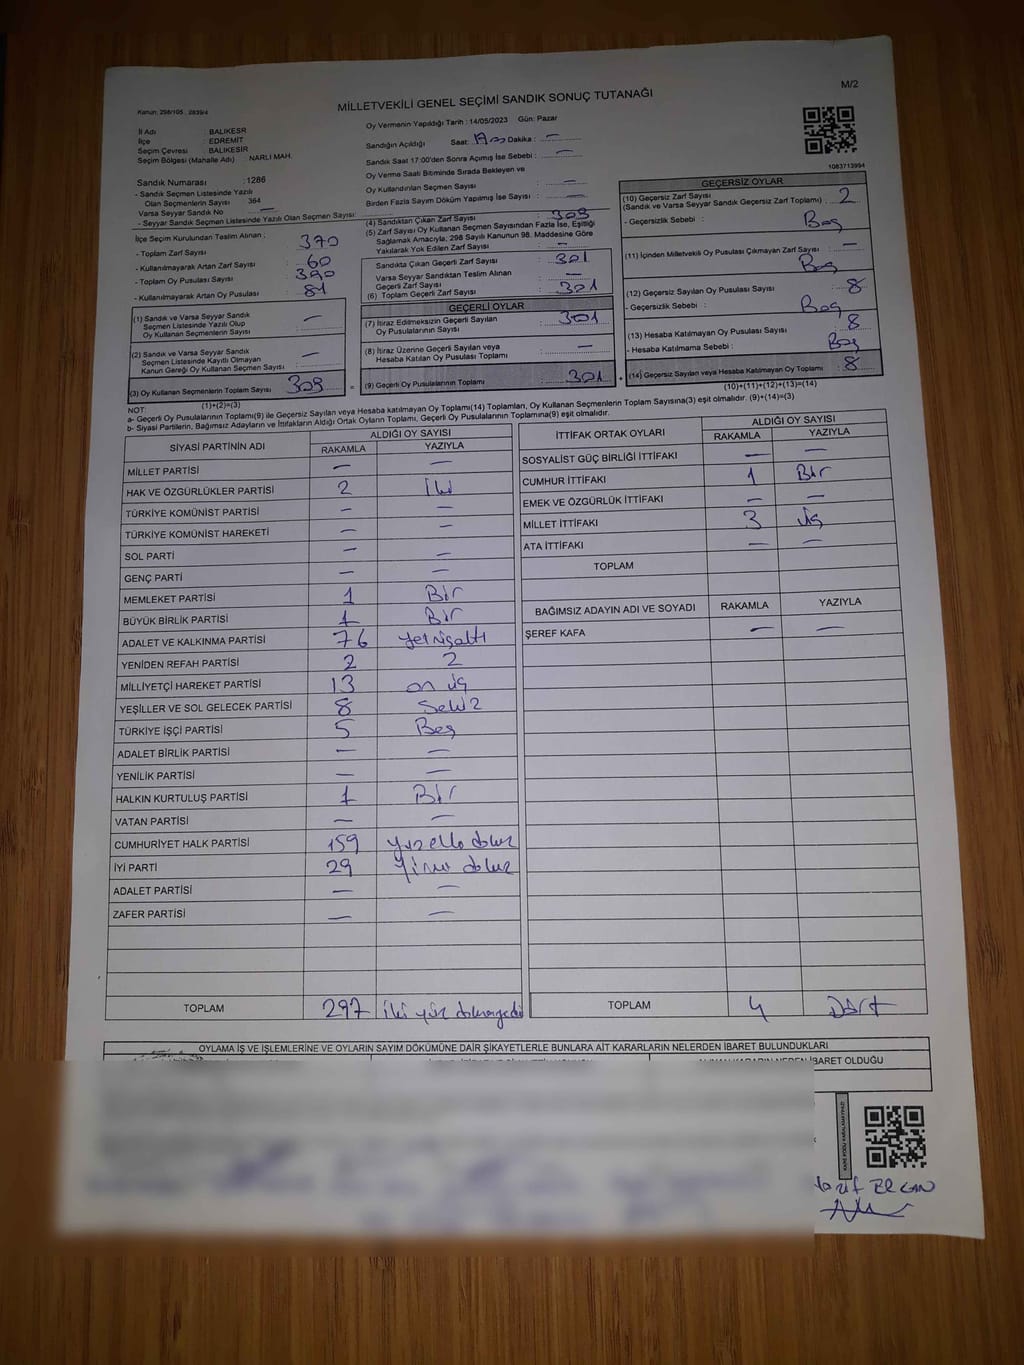 M/2
MİLLETVEKİLİ GENEL SEÇİMİ SANDIK SONUÇ TUTANAĞI
Kanun: 298/105 , 2839/4
İl Adı : BALIKESİR
İlçe : EDREMİT
Seçim Çevresi : BALIKESİR
Seçim Bölgesi (Mahalle Adı) : NARLI MAH.
Oy Vermenin Yapıldığı Tarih : 14/05/2023 Gün: Pazar
Sandığın Açıldığı Saat: Dakika : —
Sandık Saat 17:00'den Sonra Açılmış İse Sebebi : —
Oy Verme Saati Bitiminde Sırada Bekleyen ve
Oy Kullandırılan Seçmen Sayısı : —
Birden Fazla Sayım Döküm Yapılmış İse Sayısı : —
1083713994
Sandık Numarası : 1286
- Sandık Seçmen Listesinde Yazılı
Olan Seçmenlerin Sayısı : 364
Varsa Seyyar Sandık No : —
- Seyyar Sandık Seçmen Listesinde Yazılı Olan Seçmen Sayısı:
İlçe Seçim Kurulundan Teslim Alınan :
- Toplam Zarf Sayısı : 370
- Kullanılmayarak Artan Zarf Sayısı : 60
- Toplam Oy Pusulası Sayısı : 390
- Kullanılmayarak Artan Oy Pusulası : 81
(1) Sandık ve Varsa Seyyar Sandık
Seçmen Listesinde Yazılı Olup
Oy Kullanan Seçmenlerin Sayısı : —
(2) Sandık ve Varsa Seyyar Sandık
Seçmen Listesinde Kayıtlı Olmayan
Kanun Gereği Oy Kullanan Seçmen Sayısı : —
(3) Oy Kullanan Seçmenlerin Toplam Sayısı : 309 =
(1)+(2)=(3)
(4) Sandıktan Çıkan Zarf Sayısı : 309
(5) Zarf Sayısı Oy Kullanan Seçmen Sayısından Fazla İse, Eşitliği
Sağlamak Amacıyla, 298 Sayılı Kanunun 98. Maddesine Göre
Yakılarak Yok Edilen Zarf Sayısı : —
Sandıkta Çıkan Geçerli Zarf Sayısı : 301
Varsa Seyyar Sandıktan Teslim Alınan
Geçerli Zarf Sayısı : —
(6) Toplam Geçerli Zarf Sayısı : 301
GEÇERLİ OYLAR
(7) İtiraz Edilmeksizin Geçerli Sayılan
Oy Pusulalarının Sayısı : 301
(8) İtiraz Üzerine Geçerli Sayılan veya
Hesaba Katılan Oy Pusulası Toplamı : —
(9) Geçerli Oy Pusulalarının Toplamı : 301 +
GEÇERSİZ OYLAR
(10) Geçersiz Zarf Sayısı
(Sandık ve Varsa Seyyar Sandık Geçersiz Zarf Toplamı) : 2
- Geçersizlik Sebebi : Boş
(11) İçinden Milletvekili Oy Pusulası Çıkmayan Zarf Sayısı : —
Boş
(12) Geçersiz Sayılan Oy Pusulası Sayısı : 8
- Geçersizlik Sebebi : Boş
(13) Hesaba Katılmayan Oy Pusulası Sayısı : 8
- Hesaba Katılmama Sebebi : Boş
(14) Geçersiz Sayılan veya Hesaba Katılmayan Oy Toplamı : 8
(10)+(11)+(12)+(13)=(14)
NOT:
a- Geçerli Oy Pusulalarının Toplamı(9) ile Geçersiz Sayılan veya Hesaba katılmayan Oy Toplamı(14) Toplamları, Oy Kullanan Seçmenlerin Toplam Sayısına(3) eşit olmalıdır. (9)+(14)=(3)
b- Siyasi Partilerin, Bağımsız Adayların ve İttifakların Aldığı Ortak Oyların Toplamı, Geçerli Oy Pusulalarının Toplamına(9) eşit olmalıdır.
SİYASİ PARTİNİN ADI ALDIĞI OY SAYISI
RAKAMLA YAZIYLA
MİLLET PARTİSİ — —
HAK VE ÖZGÜRLÜKLER PARTİSİ 2 iki
TÜRKİYE KOMÜNİST PARTİSİ — —
TÜRKİYE KOMÜNİST HAREKETİ — —
SOL PARTİ — —
GENÇ PARTİ — —
MEMLEKET PARTİSİ 1 Bir
BÜYÜK BİRLİK PARTİSİ 1 Bir
ADALET VE KALKINMA PARTİSİ 76 yetmişaltı
YENİDEN REFAH PARTİSİ 2 2
MİLLİYETÇİ HAREKET PARTİSİ 13 on üç
YEŞİLLER VE SOL GELECEK PARTİSİ 8 Sekiz
TÜRKİYE İŞÇİ PARTİSİ 5 Beş
ADALET BİRLİK PARTİSİ — —
YENİLİK PARTİSİ — —
HALKIN KURTULUŞ PARTİSİ 1 Bir
VATAN PARTİSİ — —
CUMHURİYET HALK PARTİSİ 159 yüzelli dokuz
İYİ PARTİ 29 Yirmi dokuz
ADALET PARTİSİ — —
ZAFER PARTİSİ — —
TOPLAM 297 iki yüz doksanyedi
İTTİFAK ORTAK OYLARI ALDIĞI OY SAYISI
RAKAMLA YAZIYLA
SOSYALİST GÜÇ BİRLİĞİ İTTİFAKI — —
CUMHUR İTTİFAKI 1 Bir
EMEK VE ÖZGÜRLÜK İTTİFAKI — —
MİLLET İTTİFAKI 3 üç
ATA İTTİFAKI — —
TOPLAM
BAĞIMSIZ ADAYIN ADI VE SOYADI RAKAMLA YAZIYLA
ŞEREF KAFA — —
TOPLAM 4 Dört
OYLAMA İŞ VE İŞLEMLERİNE VE OYLARIN SAYIM DÖKÜMÜNE DAİR ŞİKAYETLERLE BUNLARA AİT KARARLARIN NELERDEN İBARET BULUNDUKLARI
ALINAN KARARIN NEDEN İBARET OLDUĞU